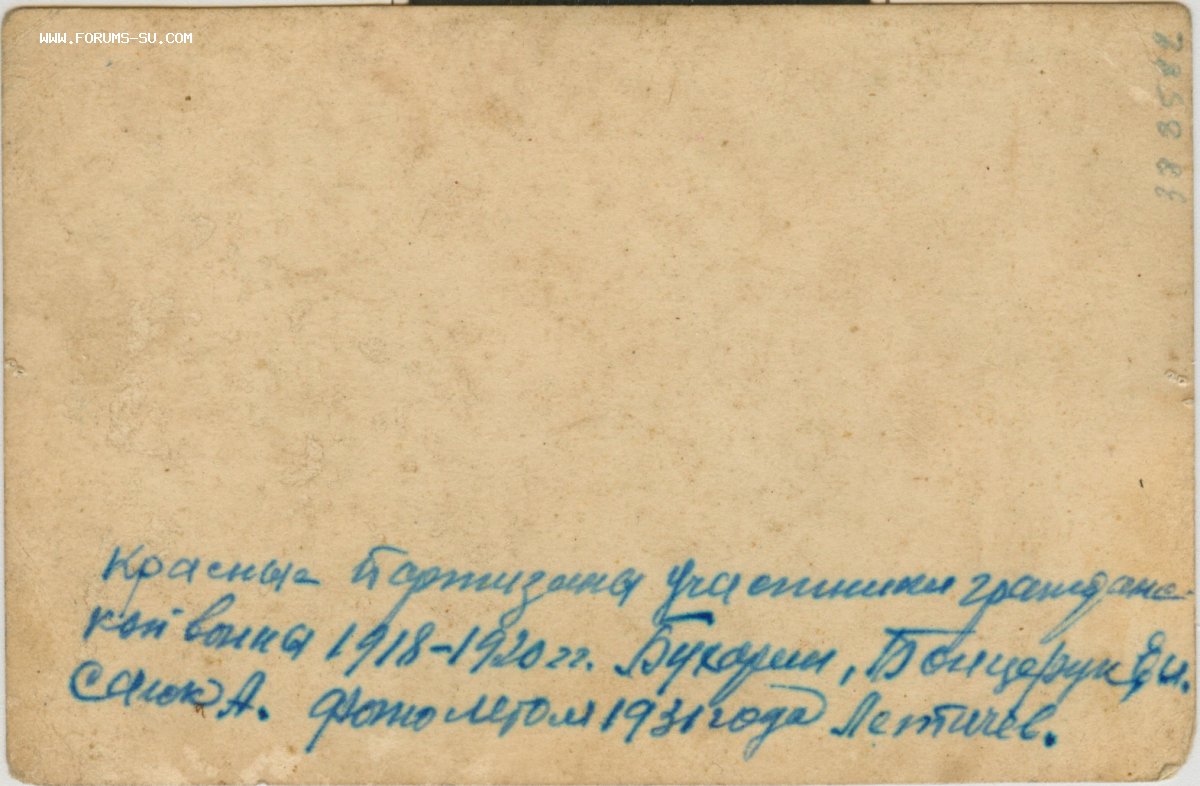 WWW.FORUMS-SU.COM
785883
Красные Партизаны участники граждансс-
кой войны 1918-1920 гг. Бухарин, Бонцарук
Салюк А. Фото летом 1931 года Летичев.